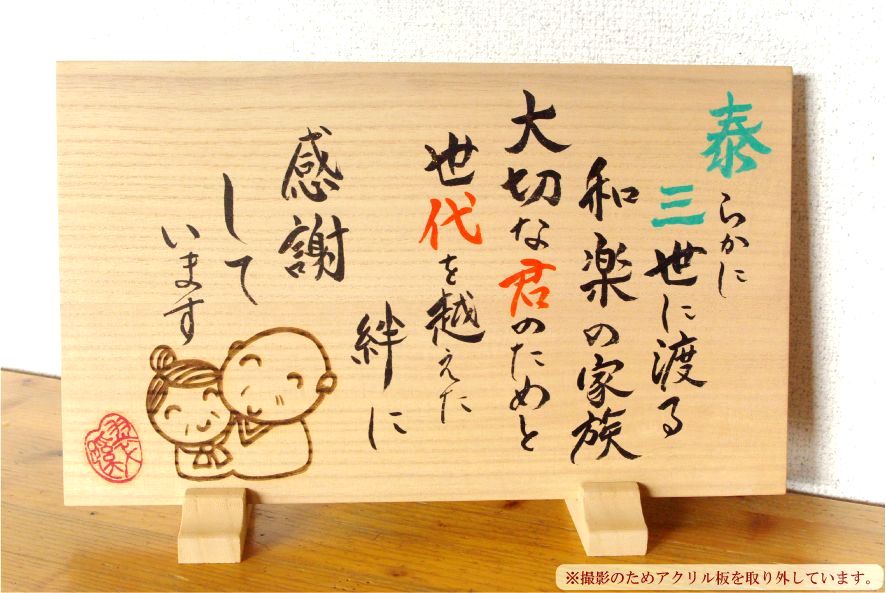 泰らかに
三世に渡る
和楽の家族
大切な君のためと
世代を越えた
絆に
感謝
して
います
※撮影のためアクリル板を取り外しています。